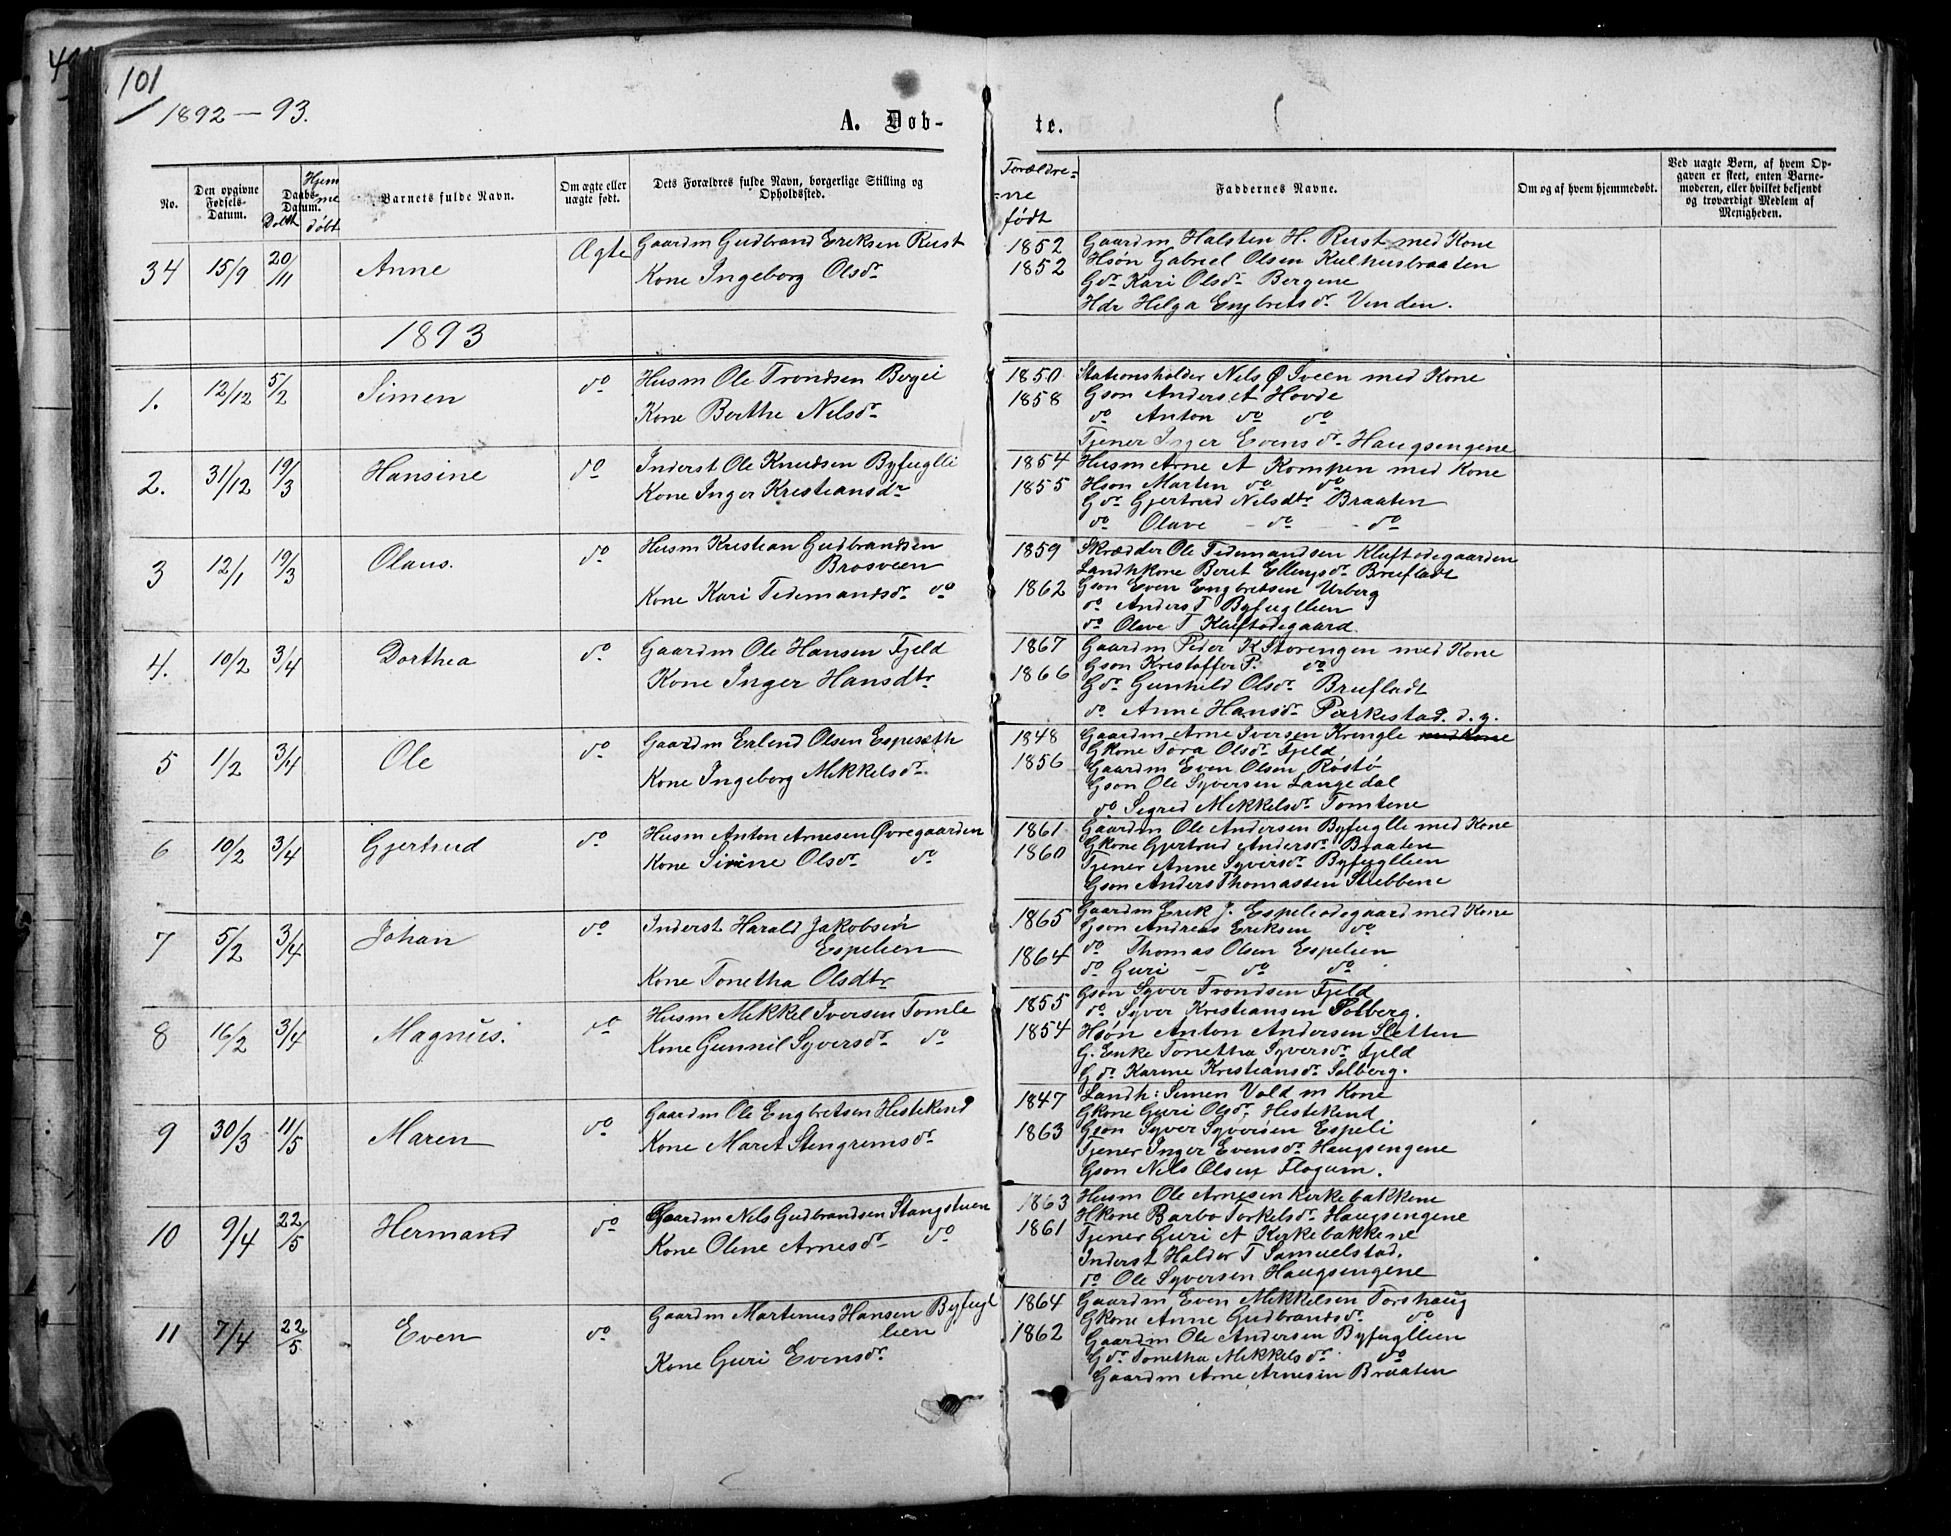 101
1892 – 93.
A. Døb-
te.
No.
Den opgivne Fødsels-Datum.
Daabs-Datum.
Døbt
Hjemmedøbt
Barnets fulde Navn.
Om ægte eller uægte født.
Dets Forældres fulde Navn, borgerlige Stilling og Opholdssted.
Forældre-
-ne
født
Faddernes Navne.
Om og af hvem hjemmedøbt.
Ved uægte Børn, af hvem Op-
gaven er skeet, enten Barne-
moderen, eller hvilket bekjendt
og troværdigt Medlem af
Menigheden.
34 15/9 20/11 Anne Ægte Gaardm Gudbrand Eriksen Rust
Kone Ingeborg Olsdr
1852
1852
Gaardm Halsten H. Rust med Kone
Hsøn Gabriel Olsen Kulhusbraaten
Gdr Kari Olsdr Bergene
Hdr Helga Engbretsdr Venden.
1893
1. 12/12 5/2 Simen do Husm Ole Trondsen Bergei
Kone Berthe Nilsdr
1850
1858
Stationsholder Nils Ø Sveen med Kone
Gson Anders A Hovde
do Anton do do
Tjener Inger Evensdr Haugsengene
2. 31/12 19/3 Hansine do Inderst Ole Knudsen Byfuglli
Kone Inger Kristiansdr
1854
1855
Husm Arne A Kompen med Kone
Hson Martin do do
Gdr Gjertrud Nilsdtr Braaten
do Olave - do - do
3 12/1 19/3 Olaus. do Husm Kristian Gudbrandsen
Brosveen
Kone Kari Tidemandsdr do
1859
1862
Skrædder Ole Tidemandsen Kluftødegaarden
Landhkone Berit Ellingsdr Brufladt
Gson Even Engbretsen Urberg
do Anders T Byfugllien
do Olave T Kluftødegaard.
4. 10/2 3/4 Dorthea do Gaardm Ole Hansen Fjeld
Kone Inger Hansdtr
1867
1866
Gaardm Peder K Storengen med Kone
Gson Kristoffer P. do
Gdr Gunhild Olsdr Brufladt
do Anne Hansdr Parkestad. d. y.
5 1/2 3/4 Ole do Gaardm Erlend Olsen Espeseth
Kone Ingeborg Mikkelsdr
1848
1856
Gaardm Arne Iversen Kringle med Kone
Gkone Tora Olsdr Fjeld
Gaardm Even Olsen Røstø
Gson Ole Syversen Langedal
do Sigrid Mikkelsdr Tomtene
6 10/2 3/4 Gjertrud do Husm Anton Arnesen Øvregaarden
Kone Sirine Olsdr do
1861
1860
Gaardm Ole Andersen Byfuglle med Kone
Gkone Gjertrud Andersdr Braaten
Tjener Anne Syversdr Byfugllien
Gson Anders Thomassen Stubbene
7 5/2 3/4 Johan do Inderst Harald Jakobsen
Espelien
Kone Tonetha Olsdtr
1865
1864
Gaardm Erik J. Espeliødegaard med Kone
Gson Andreas Eriksen do
do Thomas Olsen Espelien
do Guri - do do
8 16/2 3/4 Magnus. do Husm Mikkel Iversen Tomle
Kone Gunnil Syversdr do
1855
1854
Gson Syver Trondsen Fjeld
do Syver Kristiansen Solberg.
Hsøn Anton Andersen Sletten
G. Enke Tonetha Syversdr Fjeld
Gdr Karine Kristiansdr Solberg.
9 30/3 11/5 Maren do Gaardm Ole Engbretsen Hestekind
Kone Marit Stengrimsdr
1847
1863
Landh: Simen Vold m Kone
Gkone Guri Olsdr Hestekind
Gson Syver Syversen Espeli
Tjener Inger Evensdr Haugsengene
Gson Nils Olsen Flagum.
10 9/4 22/5 Hermand do Gaardm Nils Gudbrandsen Stangstuen
Kone Oline Arnesdr do
1863
1861
Husm Ole Arnesen Kirkebakkene
Hkone Barbo Torkelsdr Haugsengene
Tjener Guri A Kirkebakkene
Inderst Haldor T Samuelstad.
do Ole Syversen Haugsengene
11 7/4 22/5 Even do Gaardm Martinus Hansen Byfugl
lien
Kone Guri Evensdr
1864
1862
Gaardm Even Mikkelsen Torshaug
Gkone Anne Gudbrandsdr do
Gaardm Ole Andersen Byfugllien
Gdr Tonetha Mikkelsdr do
Gaardm Arne Arnesen Braaten